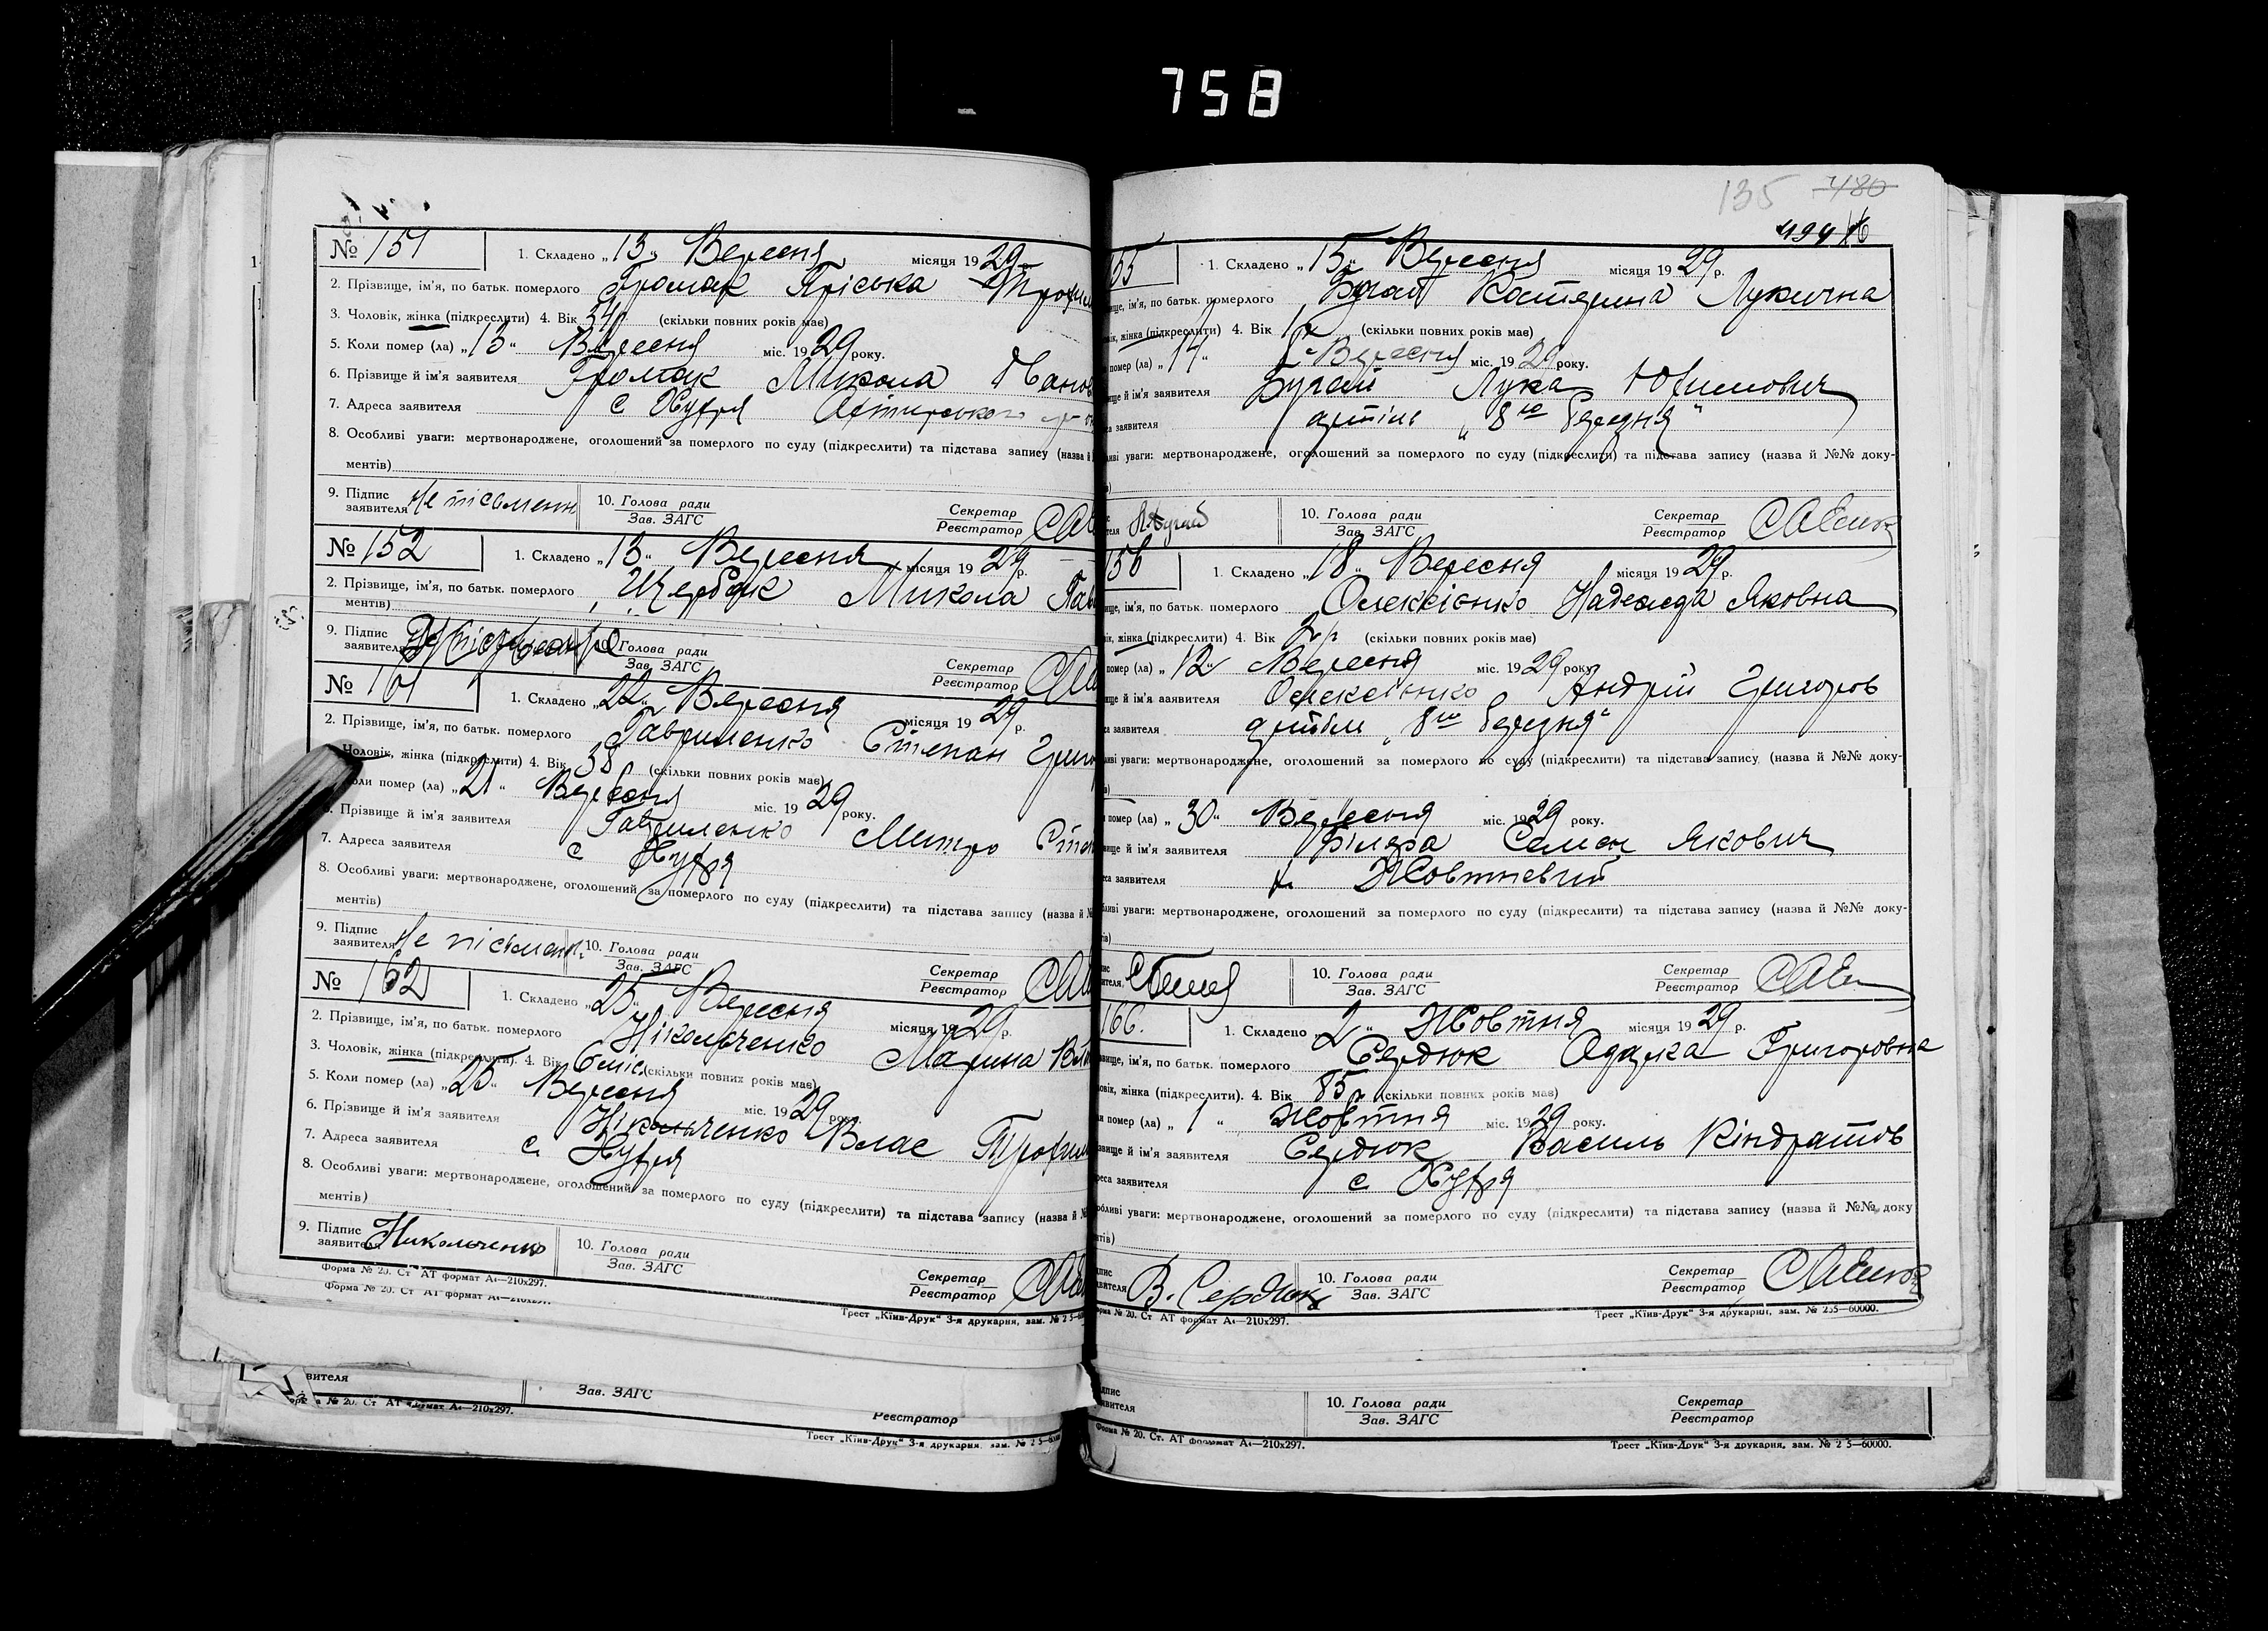 758
№ 151
1. Складено „13“ Вересня місяця 1929 р.
2. Прізвище, ім'я, по батьк. померлого Громак Пріська
3. Чоловік, жінка (підкреслити) 4. Вік 34 (скільки повних років має)
5. Коли помер (ла) „13“ Вересня міс. 1929 року.
6. Прізвище й ім'я заявителя Громак Микола
7. Адреса заявителя с Хухря
8. Особливі уваги: мертвонароджене, оголошений за померлого по суду (підкреслити) та підстава запису (назва й
ментів)
9. Підпис заявителя Не письменн 10. Голова ради Зав. ЗАГС Секретар Реєстратор
№ 152
1. Складено „13“ Вересня місяця 1929 р.
2. Прізвище, ім'я, по батьк. померлого Щербак Микола
ментів)
9. Підпис заявителя Голова ради Зав. ЗАГС Секретар Реєстратор
№ 161
1. Складено „22“ Вересня місяця 1929 р.
2. Прізвище, ім'я, по батьк. померлого Гавриленко Степан
Чоловік, жінка (підкреслити) 4. Вік 38 (скільки повних років має)
коли помер (ла) „21“ Вересня міс. 1929 року.
Прізвище й ім'я заявителя Гавриленко Митро
7. Адреса заявителя с Хухря
8. Особливі уваги: мертвонароджене, оголошений за померлого по суду (підкреслити) та підстава запису (назва й №
ментів)
9. Підпис заявителя Не письмен. 10. Голова ради Зав. ЗАГС Секретар Реєстратор
№ 162
1. Складено „25“ Вересня місяця 1929 р.
2. Прізвище, ім'я, по батьк. померлого Нікольченко Марина
3. Чоловік, жінка (підкреслити). 4. Вік 6 міс. (скільки повних років має)
5. Коли помер (ла) „25“ Вересня міс. 1929 року.
6. Прізвище й ім'я заявителя Нікольченко Влас
7. Адреса заявителя с. Хухря
8. Особливі уваги: мертвонароджене, оголошений за померлого по суду (підкреслити) та підстава запису (назва й №
ментів)
9. Підпис заявителя Никольченко 10. Голова ради Зав. ЗАГС Секретар Реєстратор
Форма № 20. Ст АТ формат А4—210х297.
Форма № 20. Ст АТ формат А4—210х297.
Трест „Київ-Друк“ 3-я друкарня, зам. №
вителя Зав. ЗАГС Реєстратор
№ 20. Ст АТ формат А4—210х297.
Трест „Київ-Друк“ 3-я друкарня, зам. №
135 480
494
55
1. Складено „15“ Вересня місяця 1929 р.
ім'я, по батьк. померлого Бугай Катерина Лукична
жінка (підкреслити) 4. Вік (скільки повних років має)
помер (ла) „14“ Вересня міс. 1929 року.
й ім'я заявителя Бугай Лука Юхимович
заявителя артіль „8го Березня“
уваги: мертвонароджене, оголошений за померлого по суду (підкреслити) та підстава запису (назва й №№ доку-
10. Голова ради Зав. ЗАГС Секретар Реєстратор
156
1. Складено „18“ Вересня місяця 1929 р.
ім'я, по батьк. померлого Олексієнко Надежда Яковна
жінка (підкреслити) 4. Вік 2 р (скільки повних років має)
помер (ла) „12“ Вересня міс. 1929 року
й ім'я заявителя Олексієнко Андрій Григоров
заявителя артіль „8го Березня“
уваги: мертвонароджене, оголошений за померлого по суду (підкреслити) та підстава запису (назва й №№ доку-
помер (ла) „30“ Вересня міс. 1929 року.
й ім'я заявителя Семен Якович
заявителя х. Жовтневий
уваги: мертвонароджене, оголошений за померлого по суду (підкреслити) та підстава запису (назва й №№ доку-
10. Голова ради Зав. ЗАГС Секретар Реєстратор
166.
1. Складено „2“ Жовтня місяця 1929 р.
ім'я, по батьк. померлого Сердюк Одарка Григоровна
жінка (підкреслити). 4. Вік 85 р (скільки повних років має)
помер (ла) „1“ Жовтня міс. 1929 року.
й ім'я заявителя Сердюк Василь Кіндратов
заявителя с Хухря
уваги: мертвонароджене, оголошений за померлого по суду (підкреслити) та підстава запису (назва й №№ доку
В. Сердюк 10. Голова ради Зав. ЗАГС Секретар Реєстратор
№ 20. Ст АТ формат А4—210х297.
Трест „Київ-Друк“ 3-я друкарня, зам. № 235—60000.
10. Голова ради Зав. ЗАГС Секретар Реєстратор
Форма № 20. Ст. АТ формат А4—210х297.
Трест „Київ-Друк“ 3-я друкарня, зам. № 2 5—60000.